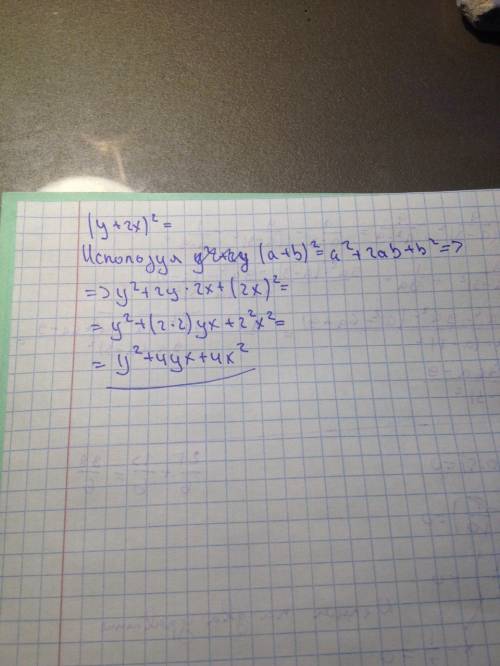 (y+2x)²=
Используя (a+b)²=a²+2ab+b²=>
=>y²+2y·2x+(2x)²=
=y²+(2·2)yx+2²x²=
=y²+4yx+4x²